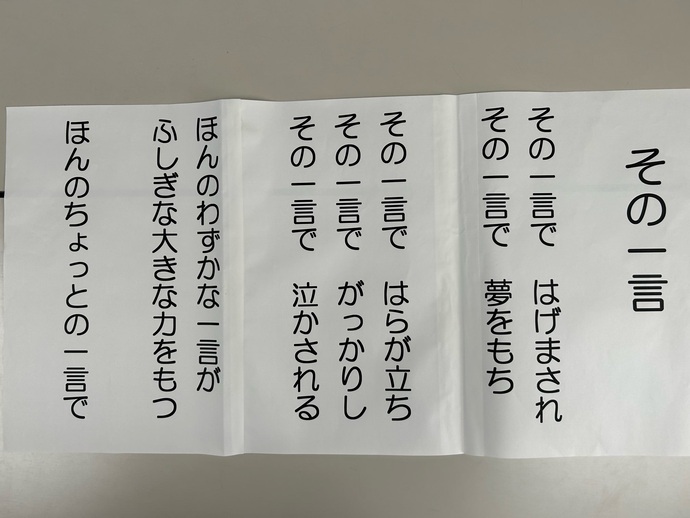 その一言
その一言で　はげまされ
その一言で　夢をもち
その一言で　はらが立ち
その一言で　がっかりし
その一言で　泣かされる
ほんのわずかな一言が
ふしぎな大きな力をもつ
ほんのちょっとの一言で